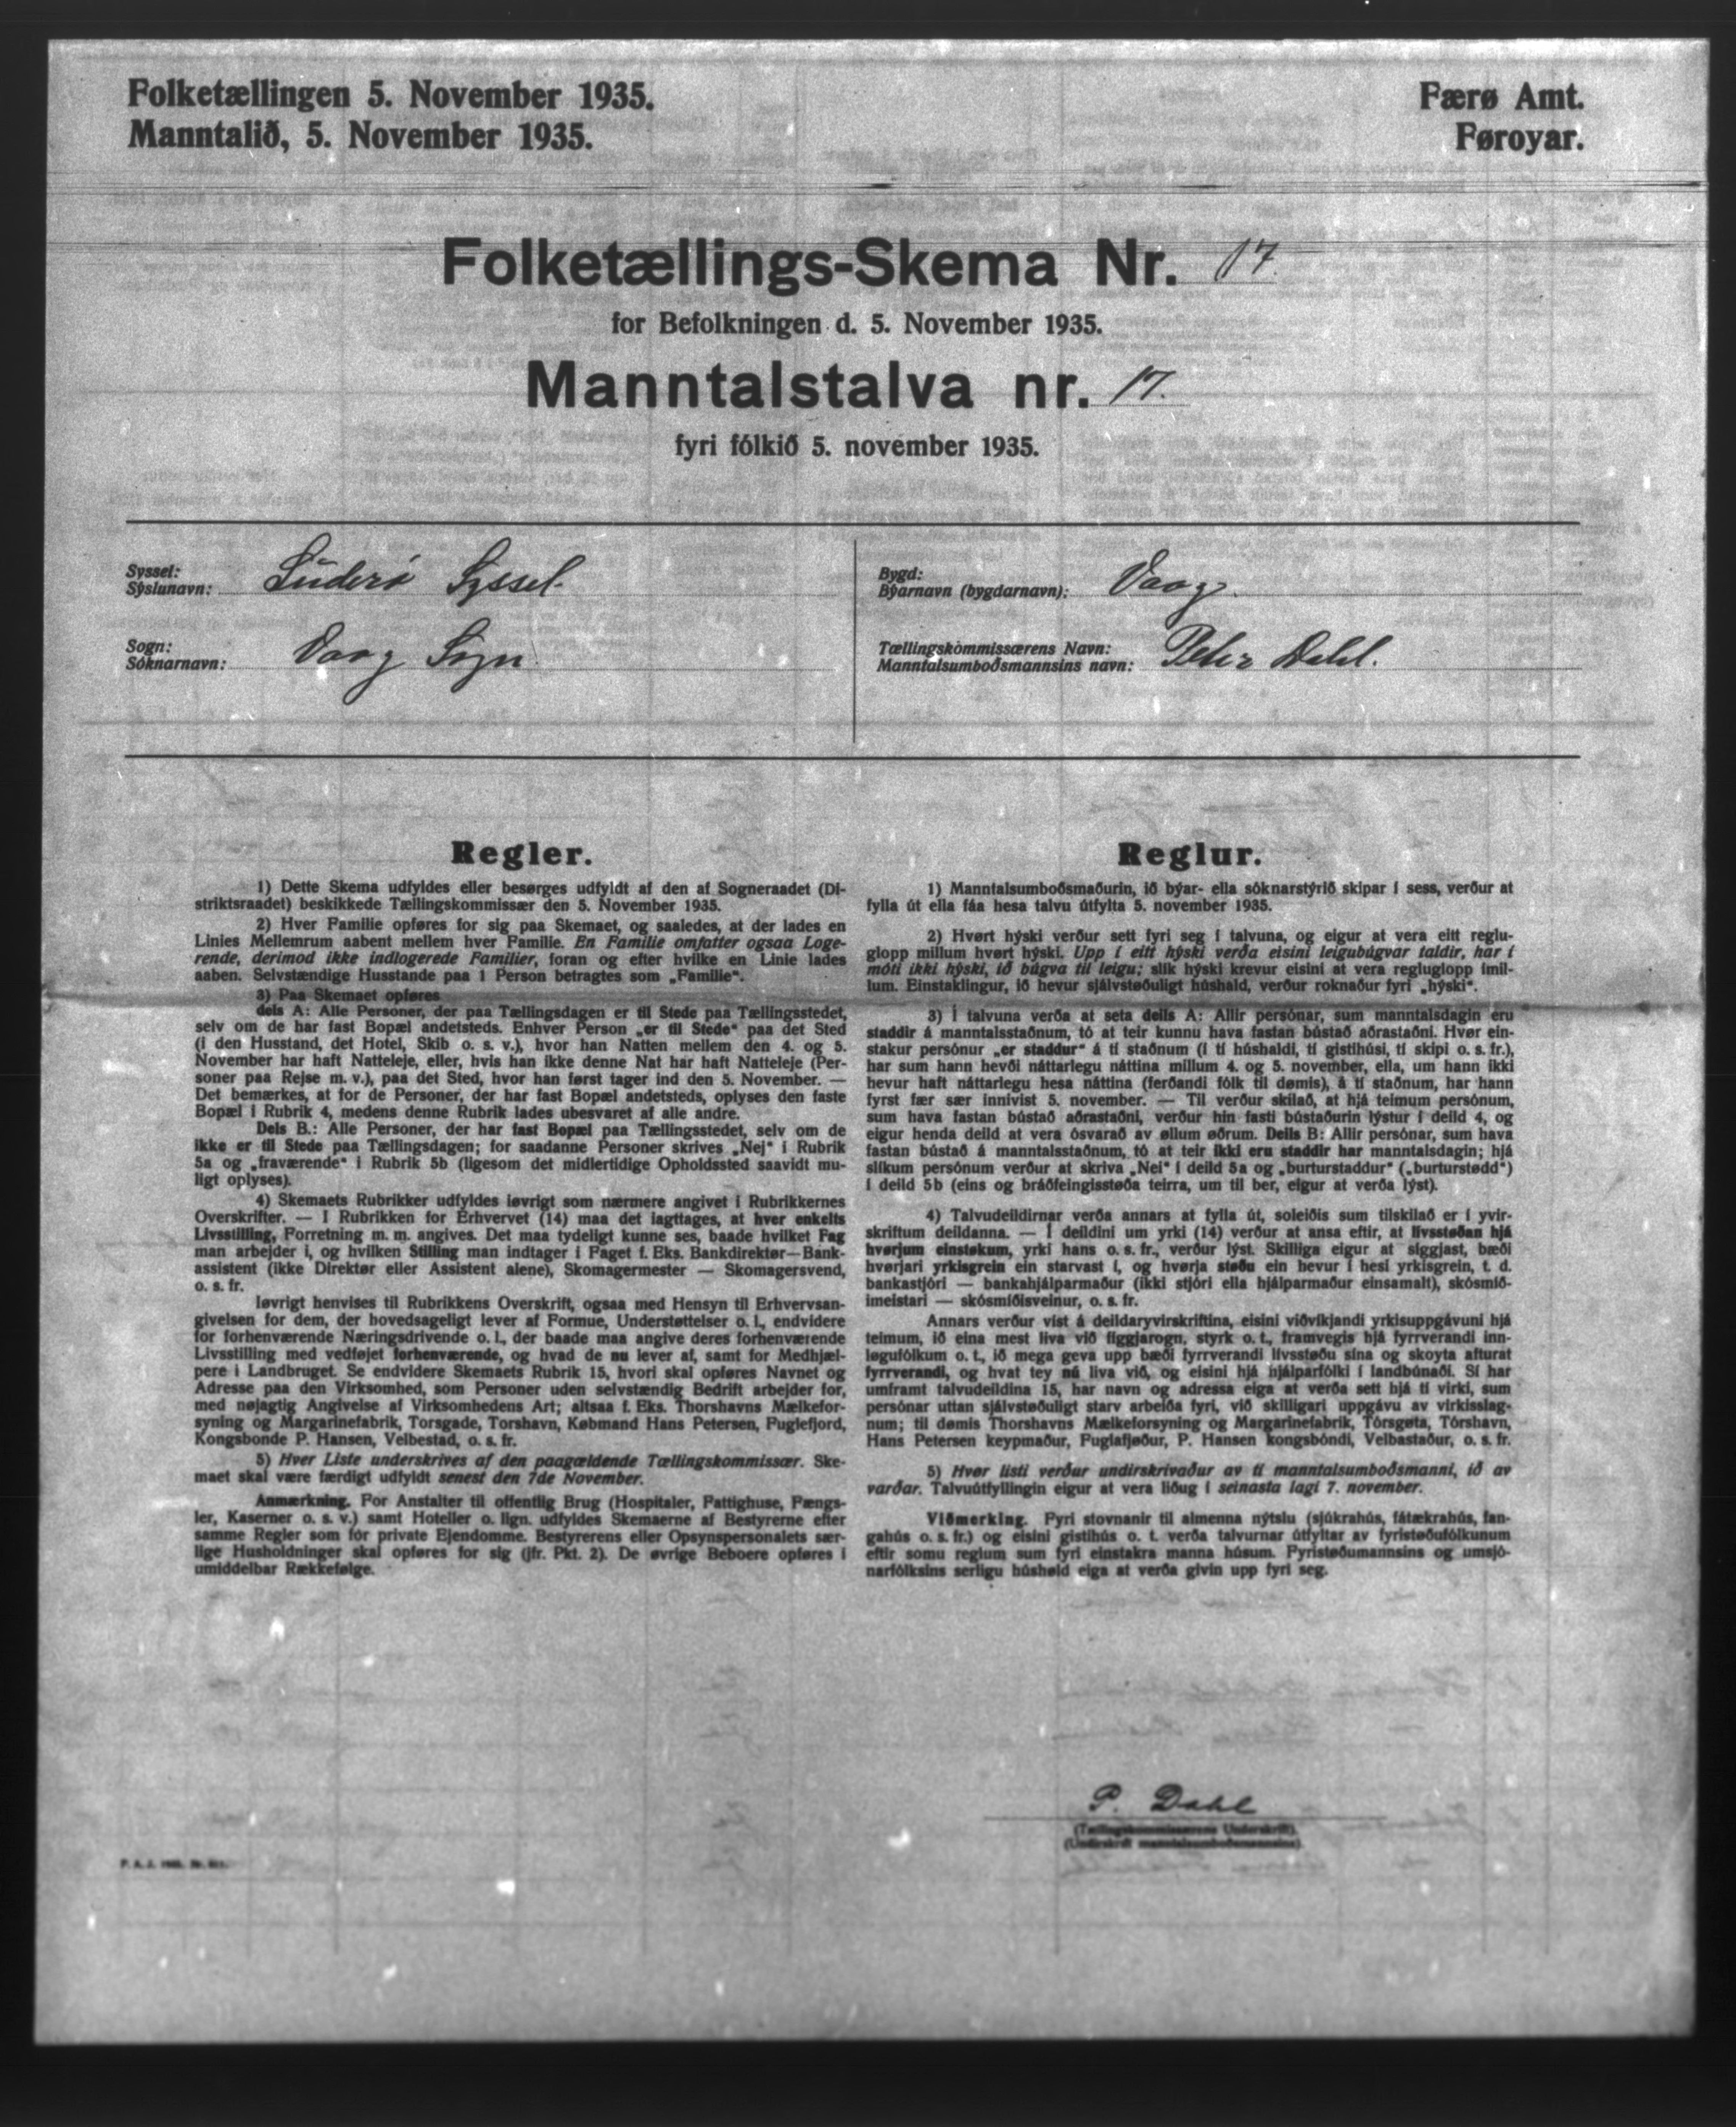 Folketællingen 5. November 1935.
Manntalið, 5. November 1935.
Færø Amt.
Føroyar.
Folketællings-Skema Nr. 17.
for Befolkningen d. 5. November 1935.
Manntalstalva nr. 17.
fyri fólkið 5. november 1935.
Syssel:
Sýslunavn: Suderø Syssel.
Sogn:
Sóknarnavn: Vaag Sogn
Bygd:
Býarnavn (bygdarnavn): Vaag.
Tællingskommissærens Navn:
Manntalsumboðsmannsins navn: Peter Dahl.
Regler.
1) Dette Skema udfyldes eller besørges udfyldt af den af Sogneraadet (Di-
striktsraadet) beskikkede Tællingskommissær den 5. November 1935.
2) Hver Familie opføres for sig paa Skemaet, og saaledes, at der lades en
Linies Mellemrum aabent mellem hver Familie. En Familie omfatter ogsaa Loge-
rende, derimod ikke indlogerede Familier, foran og efter hvilke en Linie lades
aaben. Selvstændige Husstande paa 1 Person betragtes som „Familie“.
3) Paa Skemaet opføres
dels A: Alle Personer, der paa Tællingsdagen er til Stede paa Tællingsstedet,
selv om de har fast Bopæl andetsteds. Enhver Person „er til Stede“ paa det Sted
(i den Husstand, det Hotel, Skib o. s. v.), hvor han Natten mellem den 4. og 5.
November har haft Natteleje, eller, hvis han ikke denne Nat har haft Natteleje (Per-
soner paa Rejse m. v.), paa det Sted, hvor han først tager ind den 5. November. —
Det bemærkes, at for de Personer, der har fast Bopæl andetsteds, oplyses den faste
Bopæl i Rubrik 4, medens denne Rubrik lades ubesvaret af alle andre.
Dels B.: Alle Personer, der har fast Bopæl paa Tællingsstedet, selv om de
ikke er til Stede paa Tællingsdagen; for saadanne Personer skrives „Nej“ i Rubrik
5a og „fraværende“ i Rubrik 5b (ligesom det midlertidige Opholdssted saavidt mu-
ligt oplyses).
4) Skemaets Rubrikker udfyldes iøvrigt som nærmere angivet i Rubrikkernes
Overskrifter. — I Rubrikken for Erhvervet (14) maa det iagttages, at hver enkelts
Livsstilling, Forretning m. m. angives. Det maa tydeligt kunne ses, baade hvilket Fag
man arbejder i, og hvilken Stilling man indtager i Faget f. Eks. Bankdirektør—Bank-
assistent (ikke Direktør eller Assistent alene), Skomagermester — Skomagersvend,
o. s. fr.
Iøvrigt henvises til Rubrikkens Overskrift, ogsaa med Hensyn til Erhvervsan-
givelsen for dem, der hovedsageligt lever af Formue, Understøttelser o. l., endvidere
for forhenværende Næringsdrivende o. l., der baade maa angive deres forhenværende
Livsstilling med vedføjet forhenværende, og hvad de nu lever af, samt for Medhjæl-
pere i Landbruget. Se endvidere Skemaets Rubrik 15, hvori skal opføres Navnet og
Adresse paa den Virksomhed, som Personer uden selvstændig Bedrift arbejder for,
med nøjagtig Angivelse af Virksomhedens Art; altsaa f. Eks. Thorshavns Mælkefor-
syning og Margarinefabrik, Torsgade, Torshavn, Købmand Hans Petersen, Fuglefjord,
Kongsbonde P. Hansen, Velbestad, o. s. fr.
5) Hver Liste underskrives af den paagældende Tællingskommissær. Ske-
maet skal være færdigt udfyldt senest den 7de November.
Anmærkning. For Anstalter til offentlig Brug (Hospitaler, Fattighuse, Fængs-
ler, Kaserner o. s. v.) samt Hoteller o. lign. udfyldes Skemaerne af Bestyrerne efter
samme Regler som for private Ejendomme. Bestyrerens eller Opsynspersonalets sær-
lige Husholdninger skal opføres for sig (jfr. Pkt. 2). De øvrige Beboere opføres i
umiddelbar Rækkefølge.
Reglur.
1) Manntalsumboðsmaðurin, ið býar- ella sóknarstýrið skipar í sess, verður at
fylla út ella fáa hesa talvu útfylta 5. november 1935.
2) Hvørt hýski verður sett fyri seg í talvuna, og eigur at vera eitt reglu-
glopp millum hvørt hýski. Upp í eitt hýski verða eisini leigubúgvar taldir, har í
móti ikki hýski, ið búgva til leigu; slík hýski krevur eisini at vera regluglopp ímil-
lum. Einstaklingur, ið hevur sjálvstøðuligt húshald, verður roknaður fyri „hýski“.
3) Í talvuna verða at seta dells A: Allir persónar, sum manntalsdagin eru
staddir á manntalsstaðnum, tó at teir kunnu hava fastan bústað aðrastaðni. Hvør ein-
stakur persónur „er staddur“ á tí staðnum (í tí húshaldi, tí gistihúsi, tí skipi o. s. fr.),
har sum hann hevði náttarlegu náttina millum 4. og 5. november, ella, um hann ikki
hevur haft náttarlegu hesa náttina (ferðandi fólk til dømis), á tí staðnum, har hann
fyrst fær sær innivist 5. november. — Til verður skilað, at hjá teimum persónum,
sum hava fastan bústað aðrastaðni, verður hin fasti bústaðurin lýstur í deild 4, og
eigur henda deild at vera ósvarað av øllum øðrum. Dells B: Allir persónar, sum hava
fastan bústað á manntalsstaðnum, tó at teir ikki eru staddir har manntalsdagin; hjá
slíkum persónum verður at skriva „Nei“ í deild 5a og „burturstaddur“ („burturstødd“)
í deild 5b (eins og bráðfeingisstøða teirra, um til ber, eigur at verða lýst).
4) Talvudeildirnar verða annars at fylla út, soleiðis sum tilskilað er í yvir-
skriftum deildanna. — Í deildini um yrki (14) verður at ansa eftir, at livsstøðan hjá
hvørjum einstøkum, yrki hans o. s. fr., verður lýst. Skilliga eigur at síggjast, bæði
hvørjari yrkisgrein ein starvast í, og hvørja støðu ein hevur í hesi yrkisgrein, t. d.
bankastjóri — bankahjálparmaður (ikki stjóri ella hjálparmaður einsamalt), skósmið-
imeistari — skósmiðisveinur, o. s. fr.
Annars verður víst á deildaryvirskriftina, eisini viðvíkjandi yrkisuppgávuni hjá
teimum, ið eina mest liva við figgjarogn, styrk o. t., framvegis hjá fyrrverandi inn-
løgufólkum o. t., ið mega geva upp bæði fyrrverandi livsstøðu sína og skoyta afturat
fyrrverandi, og hvat tey nú liva við, og eisini hjá hjálparfólki í landbúnaði. Sí har
umframt talvudeildina 15, har navn og adressa eiga at verða sett hjá tí virki, sum
persónar uttan sjálvstøðuligt starv arbeiða fyri, við skilligari uppgávu av virkisslag-
num; til dømis Thorshavns Mælkeforsyning og Margarinefabrik, Tórsgøta, Tórshavn,
Hans Petersen keypmaður, Fuglafjøður, P. Hansen kongsbóndi, Velbastaður, o. s. fr.
5) Hvør listi verður undirskrivaður av tí manntalsumboðsmanni, ið av
varðar. Talvuútfyllingin eigur at vera liðug í seinasta lagi 7. november.
Viðmerking. Fyri stovnanir til almenna nýtslu (sjúkrahús, fátækrahús, fan-
gahús o. s. fr.) og eisini gistihús o. t. verða talvurnar útfyltar av fyristøðufólkunum
eftir somu reglum sum fyri einstakra manna húsum. Fyristøðumannsins og umsjó-
narfólksins serligu húshøld eiga at verða givin upp fyri seg.
P. Dahl
(Tællingskommissærens Underskrift).
(Undirskrift manntalsumboðsmannsins).